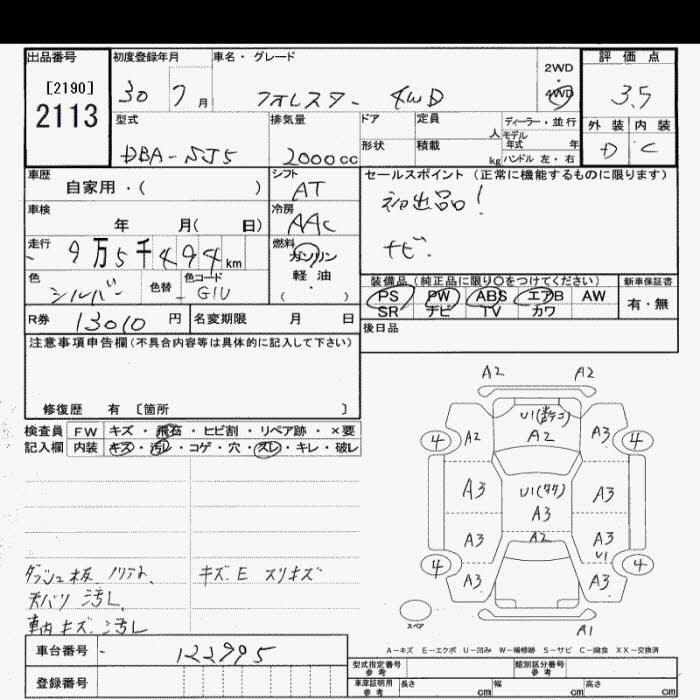 出品番号 初度登録年月 車名・グレード 2WD・4WD 評価点
[2190]
2113
30 7月 フォレスター 4WD 3.5
型式 排気量 ドア 定員 人 ディーラー・並行 外装 内装
DBA-SJ5 2000cc 形状 積載 kg モデル年式 年 ハンドル 左・右 D C
車歴 シフト セールスポイント(正常に機能するものに限ります)
自家用・( ) AT 初出品!
車検 冷房
年 月( 日) AAC
走行 燃料 ナビ.
9万5千494km ガソリン
軽油
・( )
色 色替 色コード
シルバー G1U
装備品(純正品に限り○をつけてください) 新車保証書
PS PW ABS エアB AW 有・無
SR ナビ TV カワ
R券 13010円 名変期限 月 日 後日品
注意事項申告欄(不具合内容等は具体的に記入して下さい)
修復歴 有 〔箇所 〕
検査員記入欄 FW キズ・飛石・ヒビ割・リペア跡・×要
内装 キズ・汚レ・コゲ・穴・スレ・キレ・破レ
A2 A2
U1 A2
4 A2 A3 4
A3 U1 A3 A3
A3 A2 A3 U1
4 A3 A3 4
スペア A1
ダッシュ板 キズ.E スリキズ
天バリ 汚レ
車内キズ.汚レ
A-キズ E-エクボ U-凹み W-補修跡 S-サビ C-腐食 XX-交換済
車台番号 - 122995
登録番号
型式指定番号 参考 類別区分番号 参考
車庫証明用 参考 長さ cm 幅 cm 高さ cm